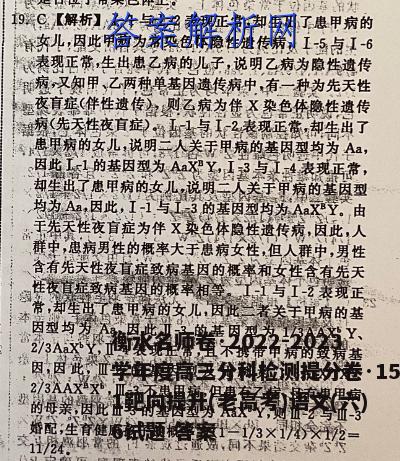 19. C【解析】 Ⅰ-1与Ⅰ-2表现正常,却生出了患甲病的
答案解析网
女儿,因此甲病为常染色体隐性遗传病,Ⅰ-5与Ⅰ-6
表现正常,生出患乙病的儿子,说明乙病为隐性遗传
病,又知甲、乙两种单基因遗传病中,有一种为先天性
夜盲症(伴性遗传),则乙病为伴X染色体隐性遗传
病(先天性夜盲症)。Ⅰ-1与Ⅰ-2表现正常,却生出了
患甲病的女儿,说明二人关于甲病的基因型均为Aa,
因此Ⅰ-1的基因型为AaXᴮY,Ⅰ-3与Ⅰ-4表现正常,
却生出了患甲病的女儿,说明二人关于甲病的基因型
均为Aa,因此,Ⅰ-1与Ⅰ-3的基因型均为AaXᴮY。由
于先天性夜盲症为伴X染色体隐性遗传病,因此,人
群中,患病男性的概率大于患病女性,但人群中,男性
含有先天性夜盲症致病基因的概率和女性含有先天
性夜盲症致病基因的概率相等。Ⅰ-1与Ⅰ-2表现正
常,却生出了患甲病的女儿,因此二者关于甲病的基
因型均为Aa,因此Ⅱ-3的基因型为1/3AAXᴮY、
2/3AaXᴮY,
衡水名师卷·2022-2023
表现正常,且不携带甲病的致病基
因,因此,
学年度高三分科检测提分卷·15
2/3AAXᴮXᵇ
1靶向提升(老高考)语文(六)
的母亲,因此Ⅲ-3的基因型为
婚配,生育健康
6试题 答案
(1-1/3×1/4)×1/2=
11/24。